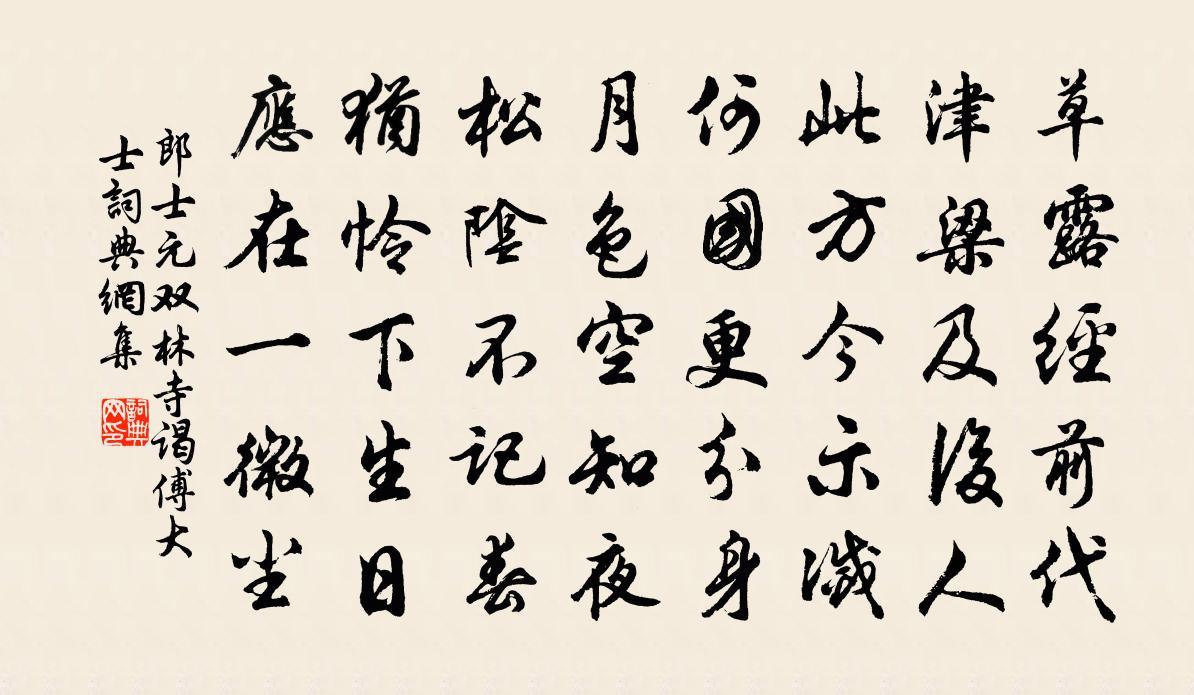 草露經前代
津梁及後人
此方今示滅
何國更分身
月色空知夜
松陰不記春
猶憐下生日
應在一微尘
郎士元双林寺謁傅大
士詞典網集
詞典网印